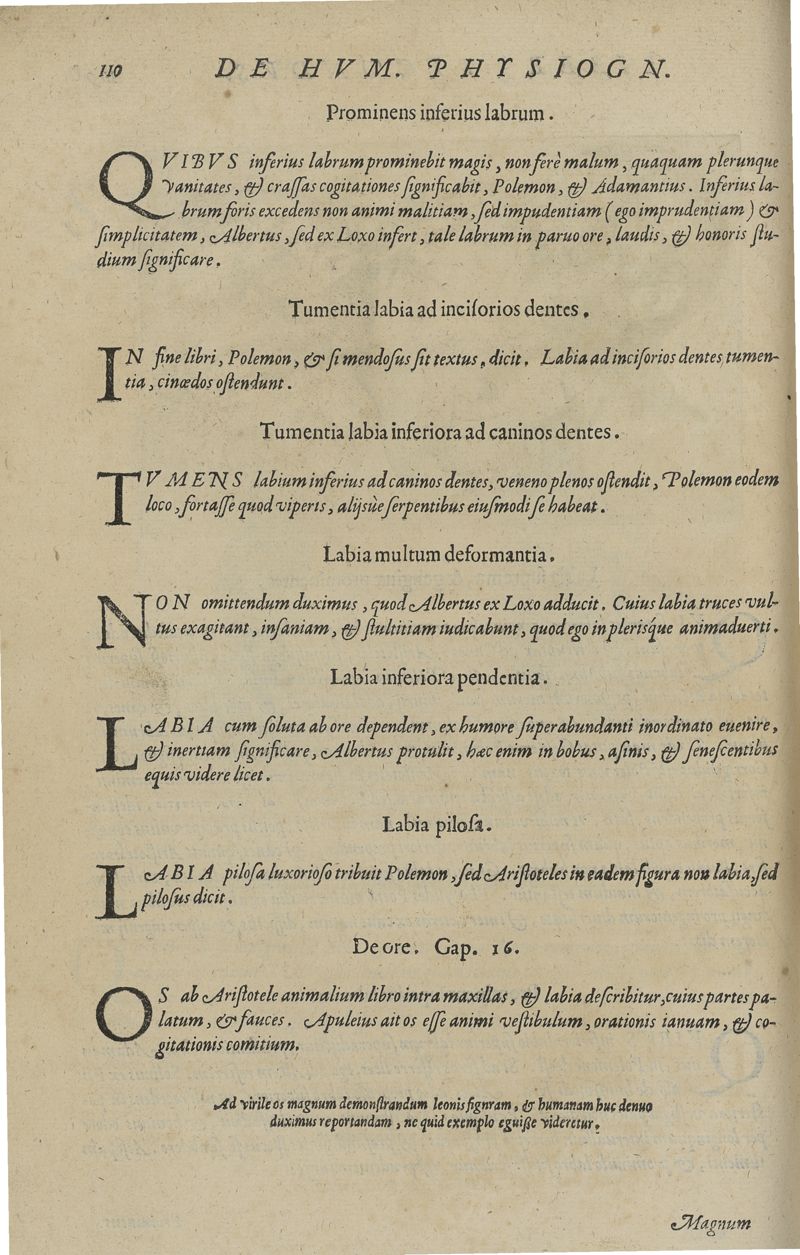 110 DE HVM. PHYSIOGN.
Prominens inferius labrum.
QVIBVS inferius labrum prominebit magis, non ferè malum, quaquam plerunque
vanitates, & craſſas cogitationes ſignificabit, Polemon, & Adamantius. Inferius la-
brum foris excedens non animi malitiam, ſed impudentiam (ego imprudentiam) &
ſimplicitatem, Albertus, ſed ex Loxo infert, tale labrum in paruo ore, laudis, & honoris ſtu-
dium ſignificare.
Tumentia labia ad inciſorios dentes.
IN fine libri, Polemon, & ſi mendoſus ſit textus, dicit. Labia ad inciſorios dentes tumen-
tia, cinædos oſtendunt.
Tumentia labia inferiora ad caninos dentes.
TVMENS labium inferius ad caninos dentes, veneno plenos oſtendit, Polemon eodem
loco, fortaſſe quod viperis, alijsùe ſerpentibus eiuſmodi ſe habeat.
Labia multum deformantia.
NON omittendum duximus, quod Albertus ex Loxo adducit. Cuius labia truces vul-
tus exagitant, inſaniam, & ſtultitiam iudicabunt, quod ego in pleriſque animaduerti.
Labia inferiora pendentia.
LABIA cum ſoluta ab ore dependent, ex humore ſuperabundanti inordinato euenire,
& inertiam ſignificare, Albertus protulit, hæc enim in bobus, aſinis, & ſeneſcentibus
equis videre licet.
Labia piloſa.
LABIA piloſa luxorioſo tribuit Polemon, ſed Ariſtoteles in eadem figura non labia, ſed
piloſus dicit.
De ore. Gap. 16.
OS ab Ariſtotele animalium libro intra maxillas, & labia deſcribitur, cuius partes pa-
latum, & fauces. Apuleius ait os eſſe animi veſtibulum, orationis ianuam, & co-
gitationis comitium.
Ad virile os magnum demonſtrandum leonis fignram, & humanam huc denuo
duximus reportandam, ne quid exemplo eguiſſe videretur.
Magnum